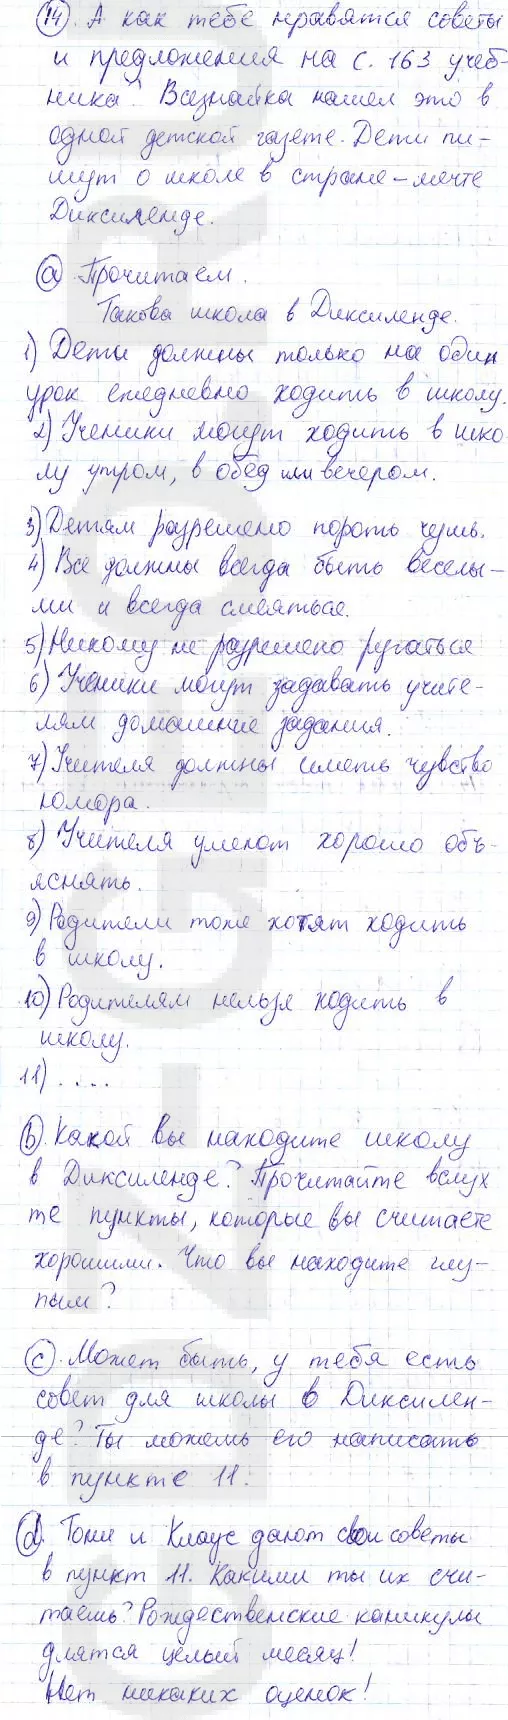 14. А как тебе нравятся советы
и предложения на с. 163 учеб-
ника? Всезнайка нашел это в
одной детской газете. Дети пи-
шут о школе в стране-мечте
Диксиленде.
a Прочитаем.
Такова школа в Диксиленде.
1) Дети должны только на один
урок ежедневно ходить в школу.
2) Ученики могут ходить в шко
лу утром, в обед или вечером.
3) Детям разрешено пороть чушь.
4) Все должны всегда быть веселы-
ми и всегда смеяться.
5) Никому не разрешено ругаться
6) Ученики могут задавать учите-
лям домашние задания.
7) Учителя должны иметь чувство
юмора.
8) Учителя умеют хорошо объ-
яснять.
9) Родители тоже хотят ходить
в школу.
10) Родителям нельзя ходить в
школу.
11) ....
b. Какой вы находите школу
в Диксиленде? Прочитайте вслух
те пункты, которые вы считаете
хорошими. Что вы находите глу-
пым?
c. Может быть, у тебя есть
совет для школы в Диксилен-
де? Ты можешь его написать
в пункте 11.
d. Тони и Клаус дают свои советы
в пункт 11. Какими ты их счи-
таешь? Рождественские каникулы
длятся целый месяц!
Нет никаких оценок!
GDZ-GEO.RU